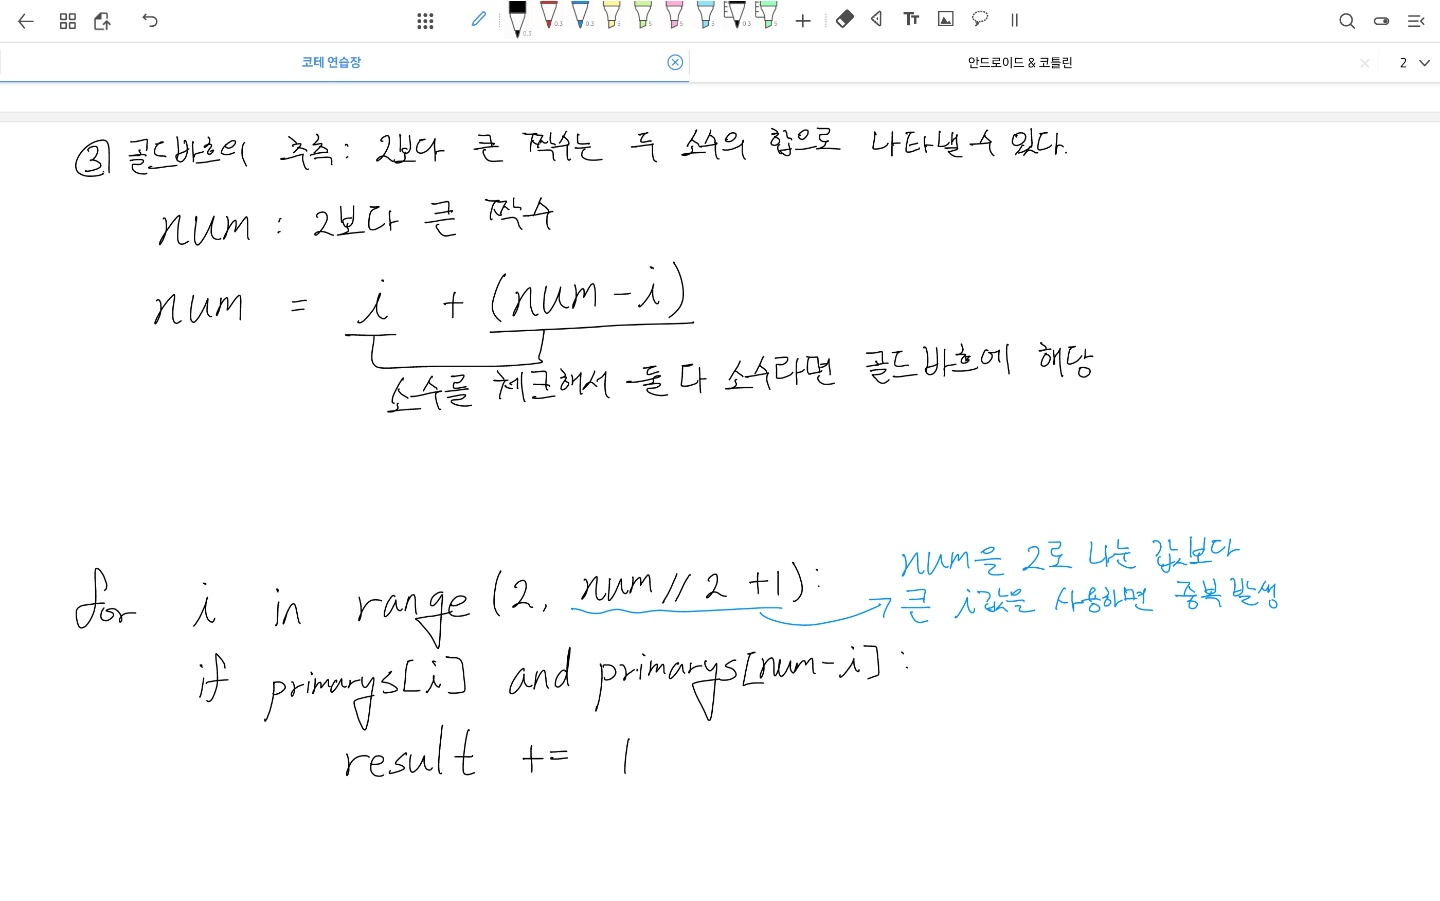 0.3 0.3 0.3 5 5 5 5 0.3 5 Tt
코테 연습장 안드로이드 & 코틀린 2
③ 골드바흐의 추측 : 2보다 큰 짝수는 두 소수의 합으로 나타낼 수 있다.
num : 2보다 큰 짝수
num = i + (num - i)
소수를 체크해서 둘 다 소수라면 골드바흐에 해당
num을 2로 나눈 값보다
for i in range (2, num // 2 +1) : 큰 i값을 사용하면 중복 발생
if primarys[i] and primarys[num-i] :
result += 1